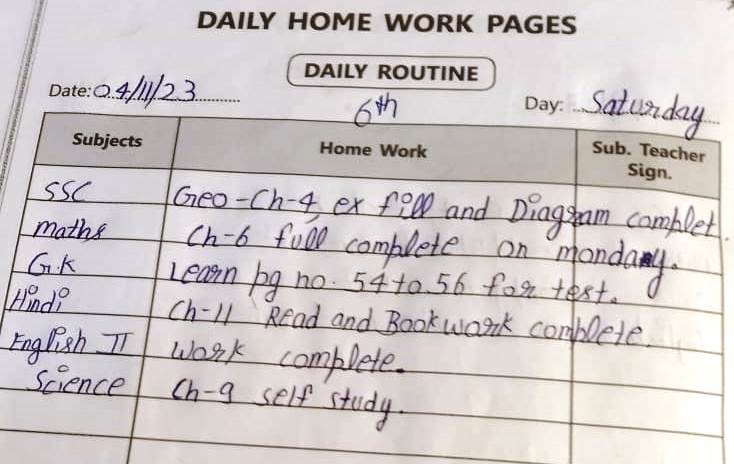 DAILY HOME WORK PAGES
DAILY ROUTINE
Date: 04/11/23 6th Day: Saturday
Subjects Home Work Sub. Teacher Sign.
SSC Geo-Ch-4, ex fill and Diagram complet.
maths Ch-6 full complete on monday.
G.K Learn pg no. 54 to 56 for test.
Hindi Ch-11 Read and Bookwork complete.
English II Work complete.
Science Ch-9 self study.